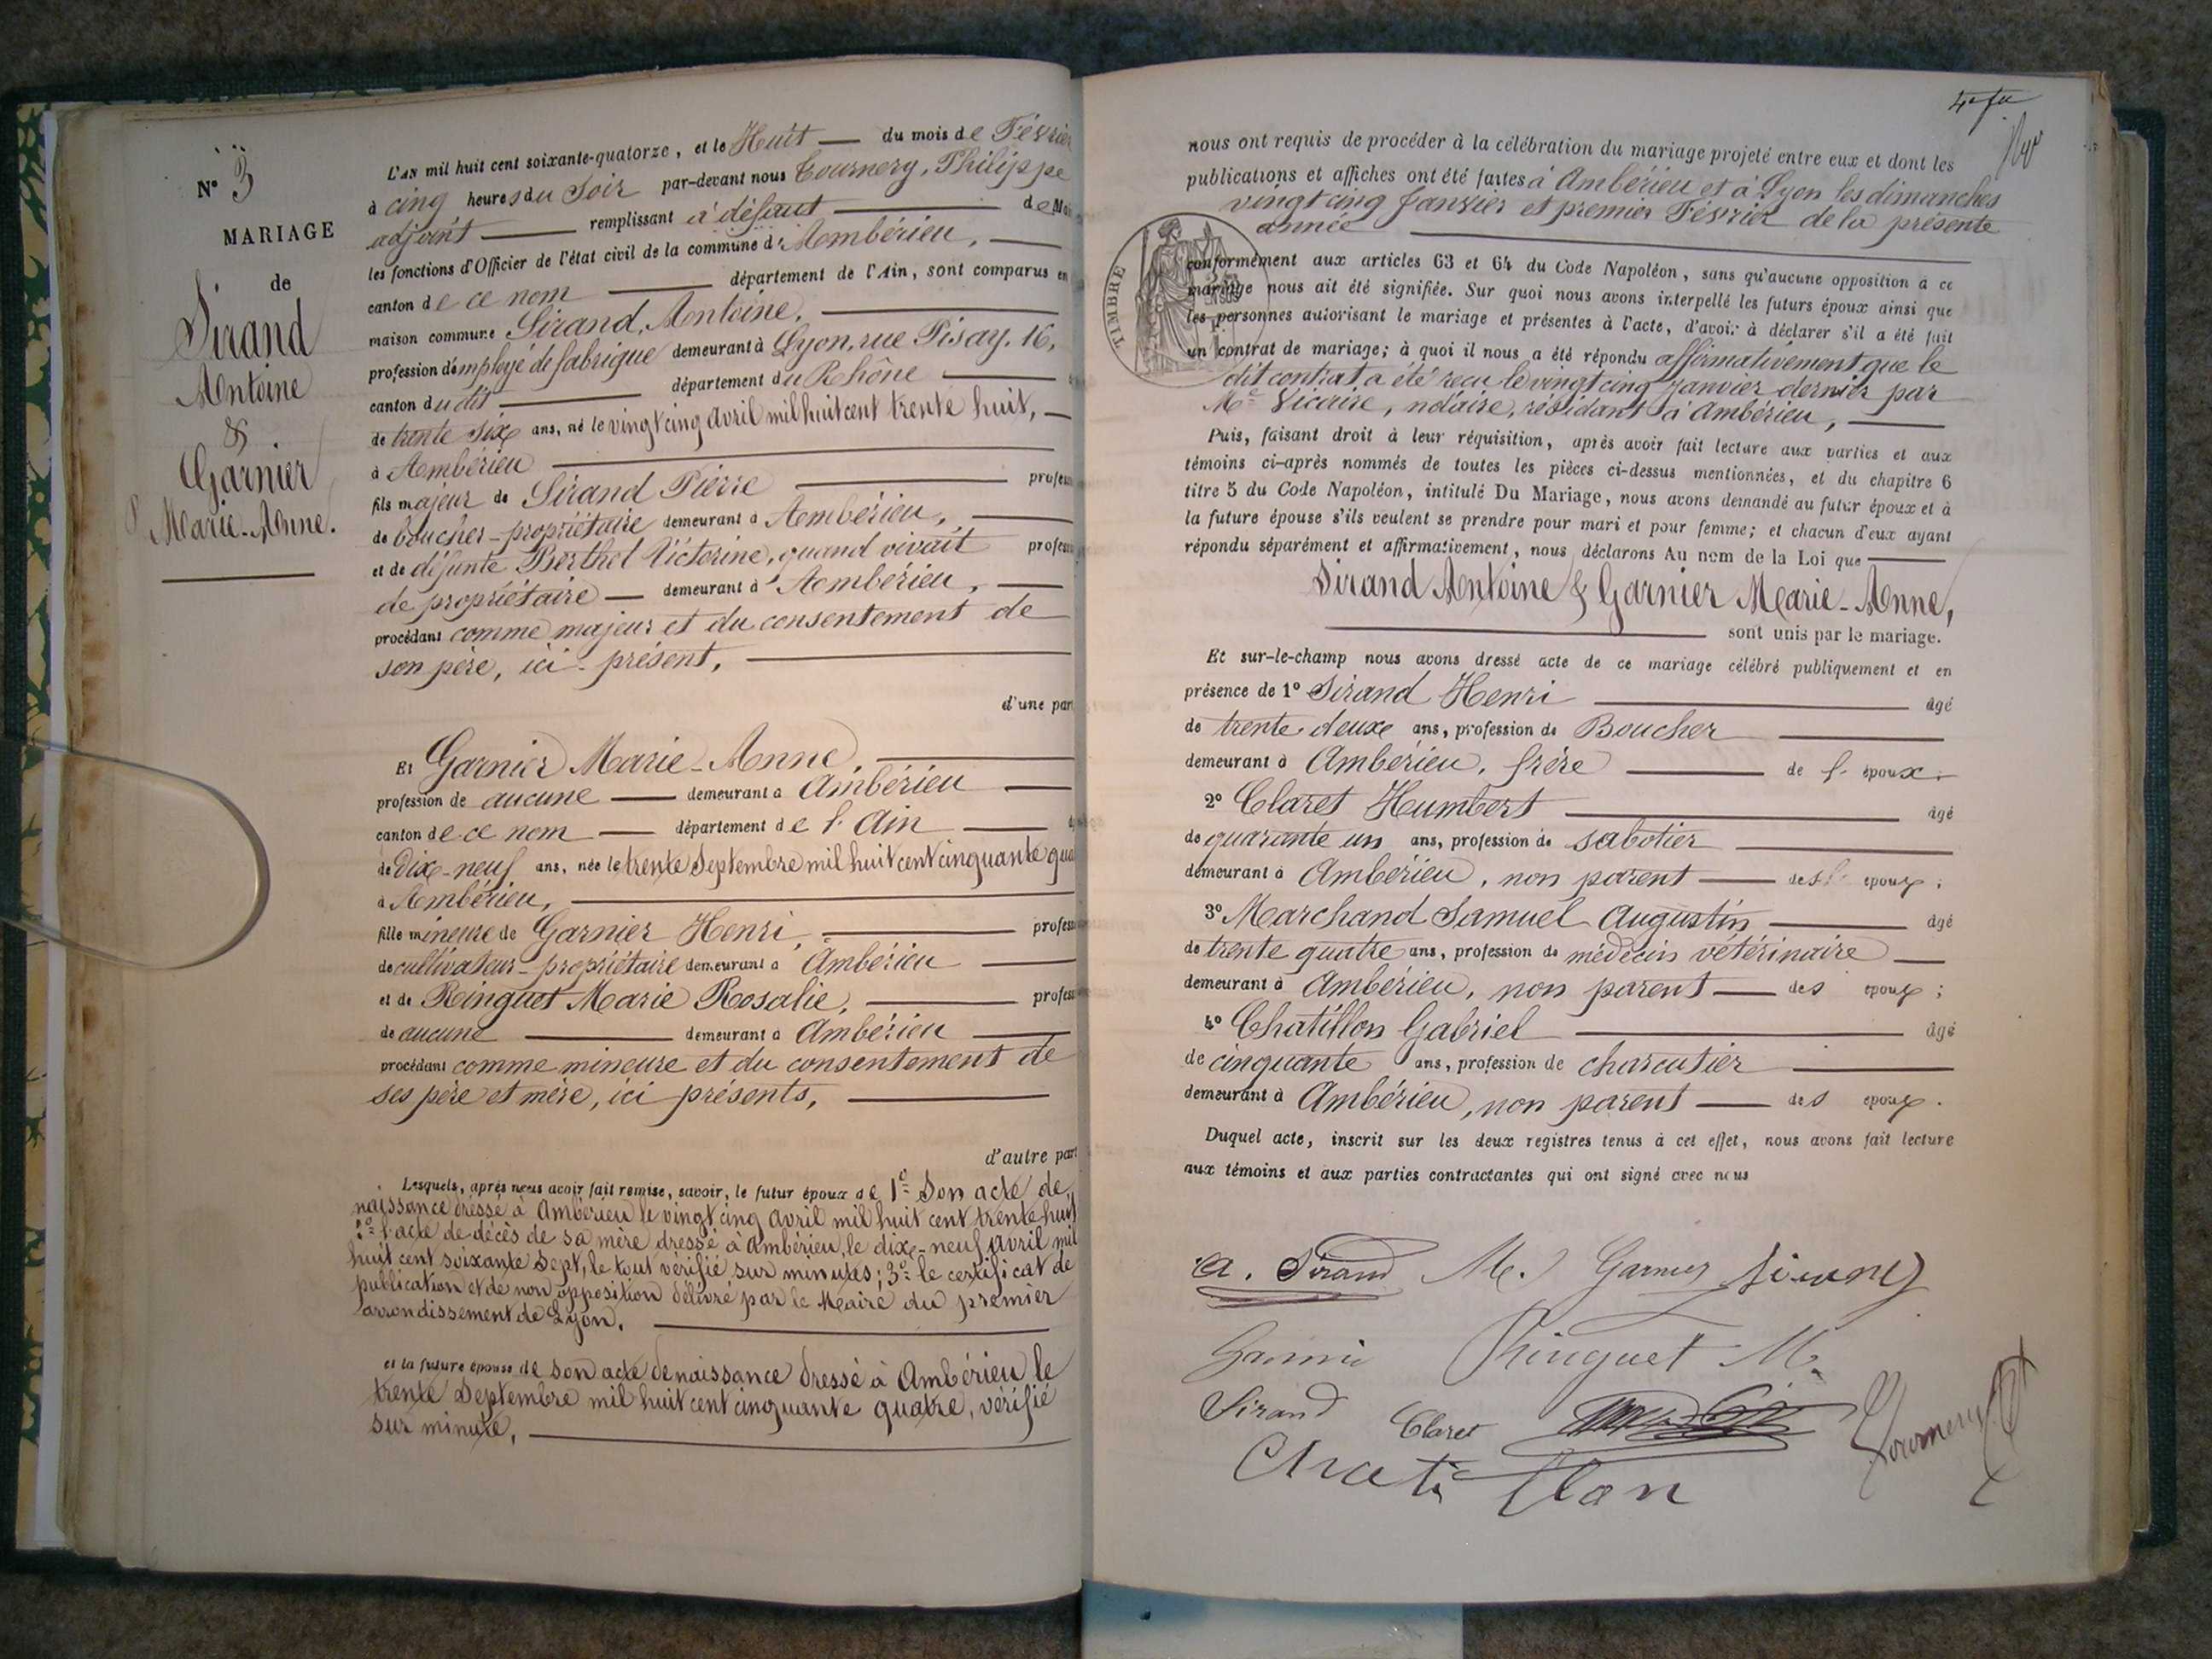 N° 3
MARIAGE
de
Sirand
Antoine
&
Garnier
Marie-Anne.
L'AN mil huit cent soixante-quatorze, et le Huit du mois de Février
à cinq heures du Soir par-devant nous Tournery, Philippe
adjoint remplissant à défaut de Mai
les fonctions d'Officier de l'état civil de la commune d'Ambérieu,
canton de ce nom département de l'Ain, sont comparus en
maison commune Sirand, Antoine,
profession d'employé de fabrique demeurant à Lyon, rue Pisay, 16,
canton dudit département du Rhône
de trente six ans, né le vingt cinq avril mil huit cent trente huit,
à Ambérieu
fils majeur de Sirand Pierre profess
de boucher-propriétaire demeurant à Ambérieu,
et de défunte Berthet Victorine, quand vivait profess
de propriétaire demeurant à Ambérieu,
procédant comme majeur et du consentement de
son père, ici-présent,
d'une part
Et Garnier Marie-Anne,
profession de aucune demeurant à Ambérieu
canton de ce nom département de l'Ain
de dix-neuf ans, née le trente Septembre mil huit cent cinquante qua
à Ambérieu,
fille mineure de Garnier Henri, profess
de cultivateur-propriétaire demeurant à Ambérieu
et de Ringuet Marie Rosalie, profess
de aucune demeurant à Ambérieu
procédant comme mineure et du consentement de
ses père et mère, ici présents,
d'autre part
Lesquels, après nous avoir fait remise, savoir, le futur époux de 1° Son acte de
naissance dressé à Ambérieu le vingt cinq avril mil huit cent trente huit
2° l'acte de décès de sa mère dressé à Ambérieu, le dix-neuf avril mil
huit cent soixante Sept, le tout vérifié sur minutes; 3° le certificat de
publication et de non opposition délivré par le Maire du premier
arrondissement de Lyon.
et la future épouse de son acte de naissance dressé à Ambérieu le
trente Septembre mil huit cent cinquante quatre, vérifié
sur minute,
nous ont requis de procéder à la célébration du mariage projeté entre eux et dont les
publications et affiches ont été faites à Ambérieu et à Lyon les dimanches
vingt cinq Janvier et premier Février de la présente
année
TIMBRE
conformément aux articles 63 et 64 du Code Napoléon, sans qu'aucune opposition à ce
mariage nous ait été signifiée. Sur quoi nous avons interpellé les futurs époux ainsi que
les personnes autorisant le mariage et présentes à l'acte, d'avoir à déclarer s'il a été fait
un contrat de mariage; à quoi il nous a été répondu affirmativement que le
dit contrat a été reçu le vingt cinq janvier dernier par
Me Vicaire, notaire, résidant à Ambérieu,
Puis, faisant droit à leur réquisition, après avoir fait lecture aux parties et aux
témoins ci-après nommés de toutes les pièces ci-dessus mentionnées, et du chapitre 6
titre 5 du Code Napoléon, intitulé Du Mariage, nous avons demandé au futur époux et à
la future épouse s'ils veulent se prendre pour mari et pour femme; et chacun d'eux ayant
répondu séparément et affirmativement, nous déclarons Au nom de la Loi que
Sirand Antoine & Garnier Marie-Anne,
sont unis par le mariage.
Et sur-le-champ nous avons dressé acte de ce mariage célébré publiquement et en
présence de 1° Sirand Henri âgé
de trente deux ans, profession de Boucher
demeurant à Ambérieu, frère de l'époux;
2° Claret Humbert âgé
de quarante un ans, profession de sabotier
demeurant à Ambérieu, non parent des époux;
3° Marchand Samuel Augustin âgé
de trente quatre ans, profession de médecin vétérinaire
demeurant à Ambérieu, non parent des époux;
4° Chatillon Gabriel âgé
de cinquante ans, profession de charcutier
demeurant à Ambérieu, non parent des époux.
Duquel acte, inscrit sur les deux registres tenus à cet effet, nous avons fait lecture
aux témoins et aux parties contractantes qui ont signé avec nous
A. Sirand M. Garnier
Garnier Ringuet M.
Sirand Claret Tournery
Chatillon